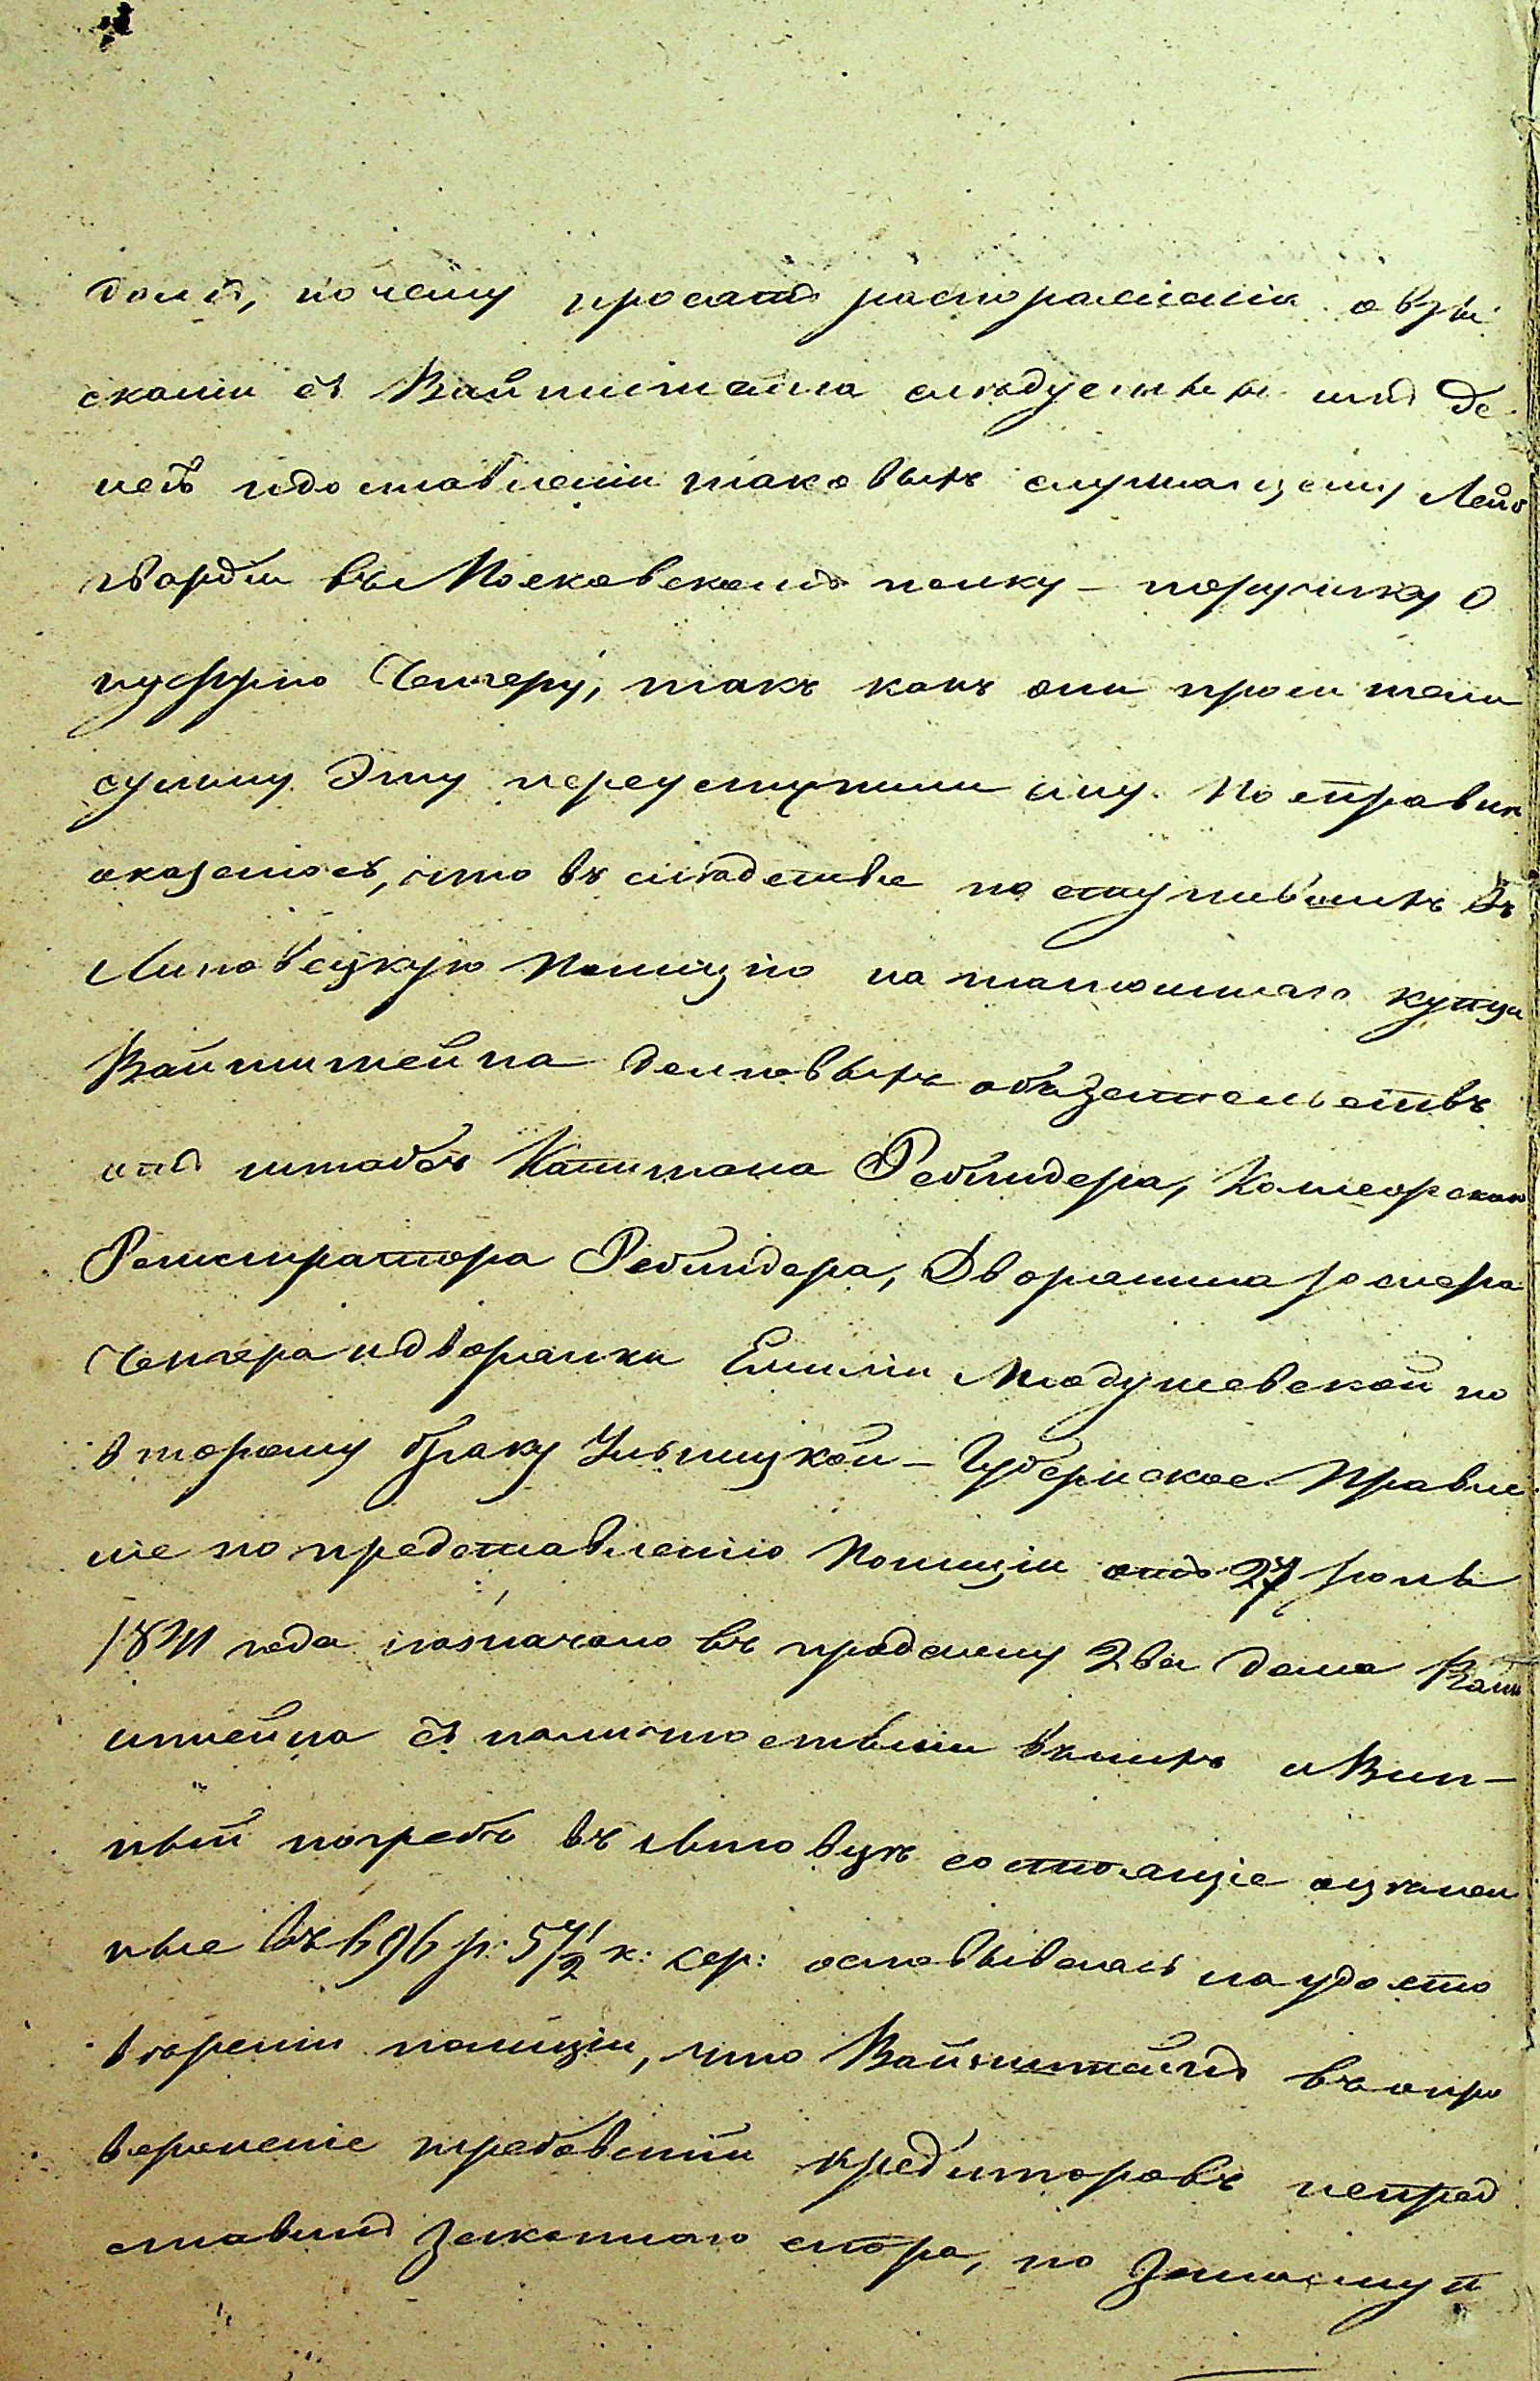 домъ, почему просятъ распоряженія о взы
сканіи съ Вайнштейна слѣдуемыхъ имъ де
негъ и доставленіи таковыхъ служащему Лейб
гвардіи въ Московскомъ полку – поручику О
нуфрію Ченгеру, такъ какъ они просители
сумму эту переуступили ему. По справкѣ
оказалось, что въ слѣдствіе поступившихъ въ
Липовецкую Полицію на тамошнаго купца
Вайнштейна долговыхъ обязательствъ
отъ штабсъ Капитана Ребиндера, Колежскаго
Регистратора Ребиндера, Дворянина Іосифа
Ченгера и дворянки Емиліи Модушевской по
второму браку Ульницкой – Губернское Правле
ніе по представленію Полиціи отъ 24 Іюль
1841 года назначало въ продажу два дома Вайн
штейна съ паличностьми въ нихъ и Вин–
ный погребъ въ Липовцѣ состоящіе оцѣнен
ные въ 696 р: 54 1/2 к: сер: основываясь на удосто
вѣреніи полиціи, что Вайнштейнъ въ опро
верженіе требованій кредиторовъ непред
ставилъ законнаго спора, но затому п